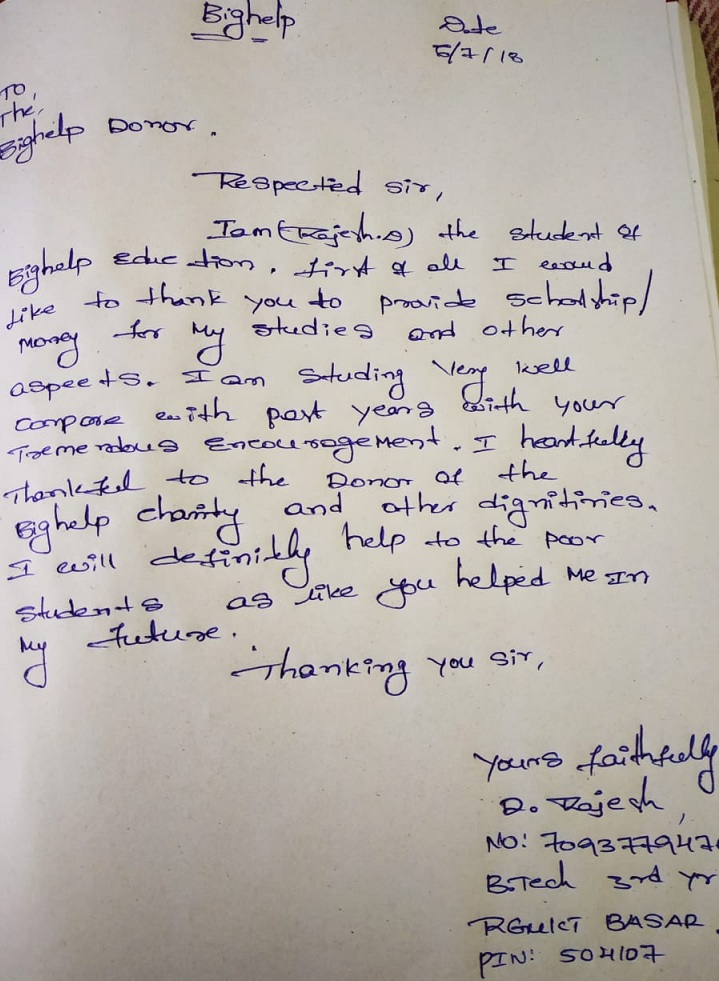 Bighelp
Date
5/7/18
To,
The,
Bighelp Donor.
Respected sir,
I am (Rajesh.D) the student of
Bighelp education. first of all I woud
like to thank you to provide scholship/
money for my studies and other
aspects. I am studing very well
compare with past years with your
Tremendous encouragement. I heartfully
Thankful to the Donor of the
Bighelp charity and other dignitiries.
I will definitly help to the poor
students as like you helped me In
my future.
Thanking you sir,
Yours faithfully
D. Rajesh,
NO: 709377947
B.Tech 3rd yr
RGUKT BASAR.
PIN: 504107